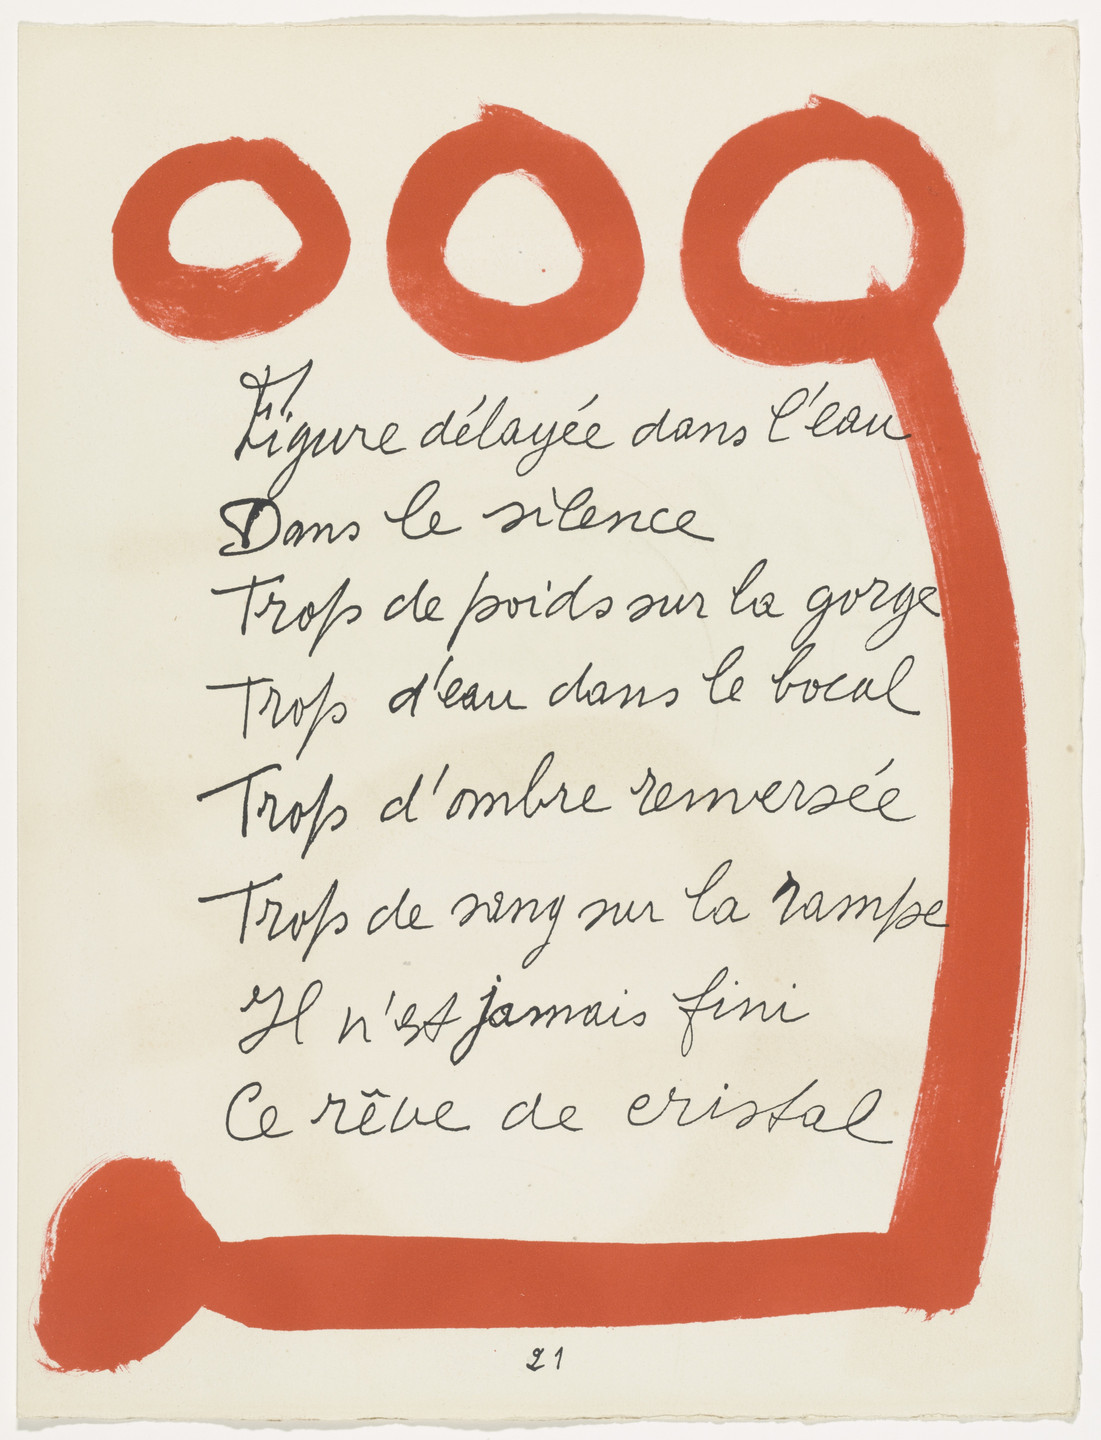 Figure délayée dans l'eau
Dans le silence
Trop de poids sur la gorge
Trop d'eau dans le bocal
Trop d'ombre renversée
Trop de sang sur la rampe
Il n'est jamais fini
Ce rêve de cristal
21